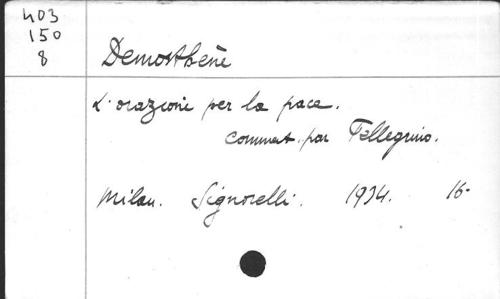 403
150
8
Demosthène
L'orazione per la pace.
comment. par Pellegrino.
Milan. Signorelli. 1934. 16-